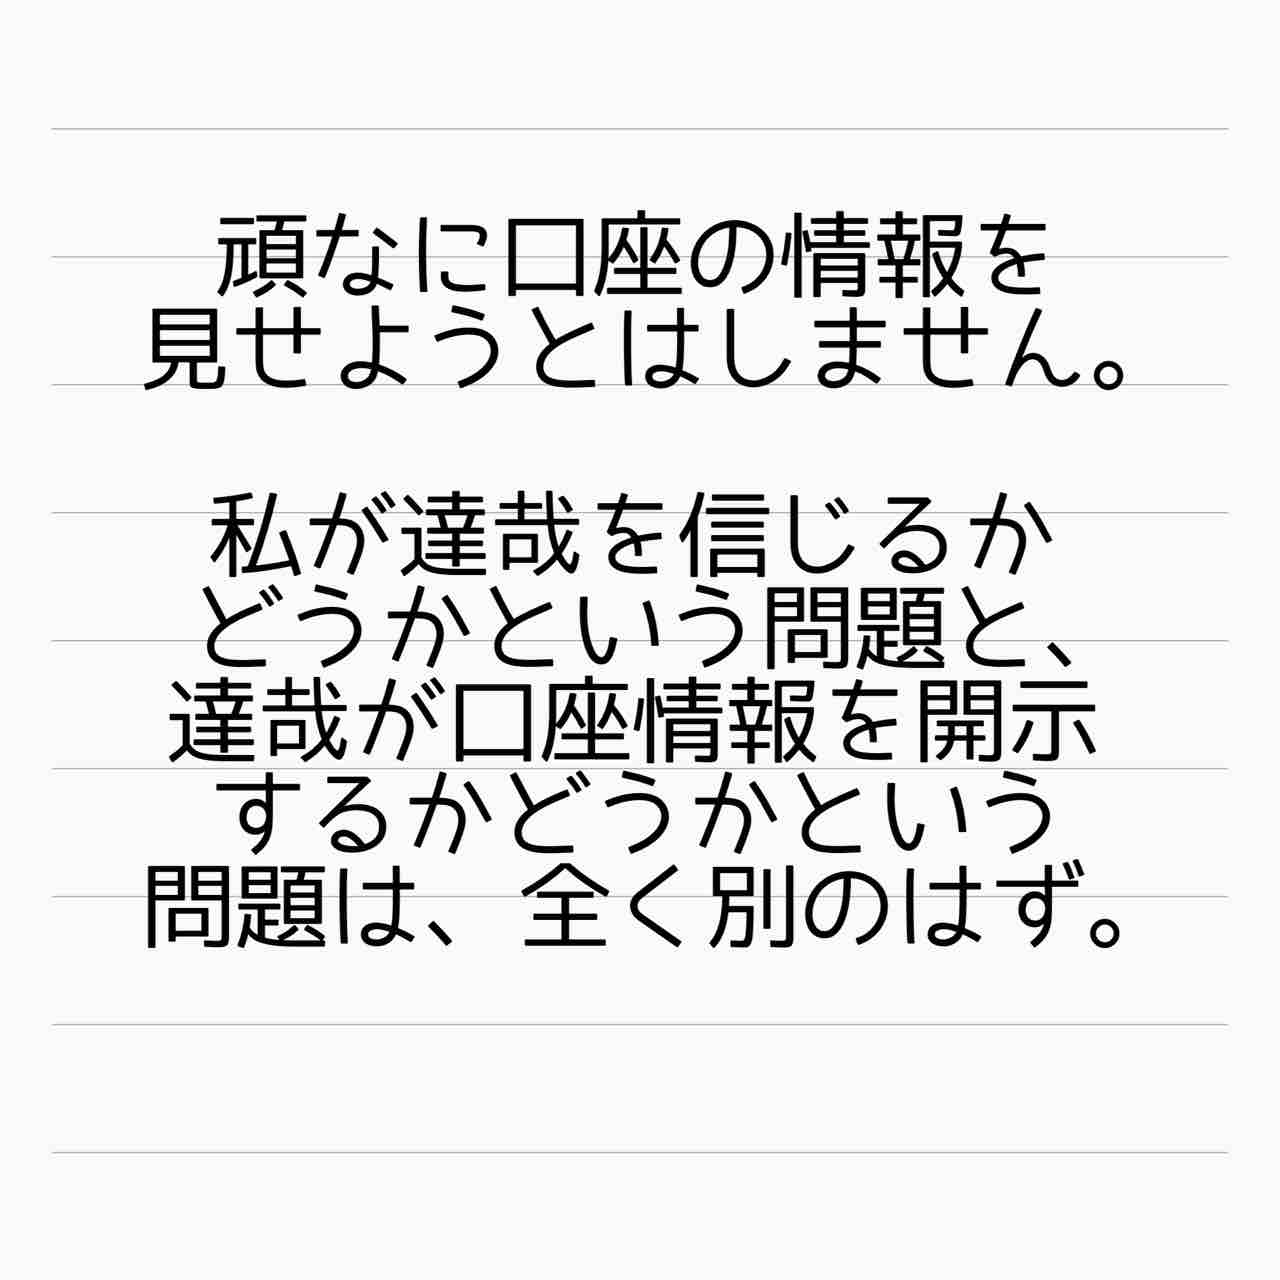 頑なに口座の情報を
見せようとはしません。
私が達哉を信じるか
どうかという問題と、
達哉が口座情報を開示
するかどうかという
問題は、全く別のはず。